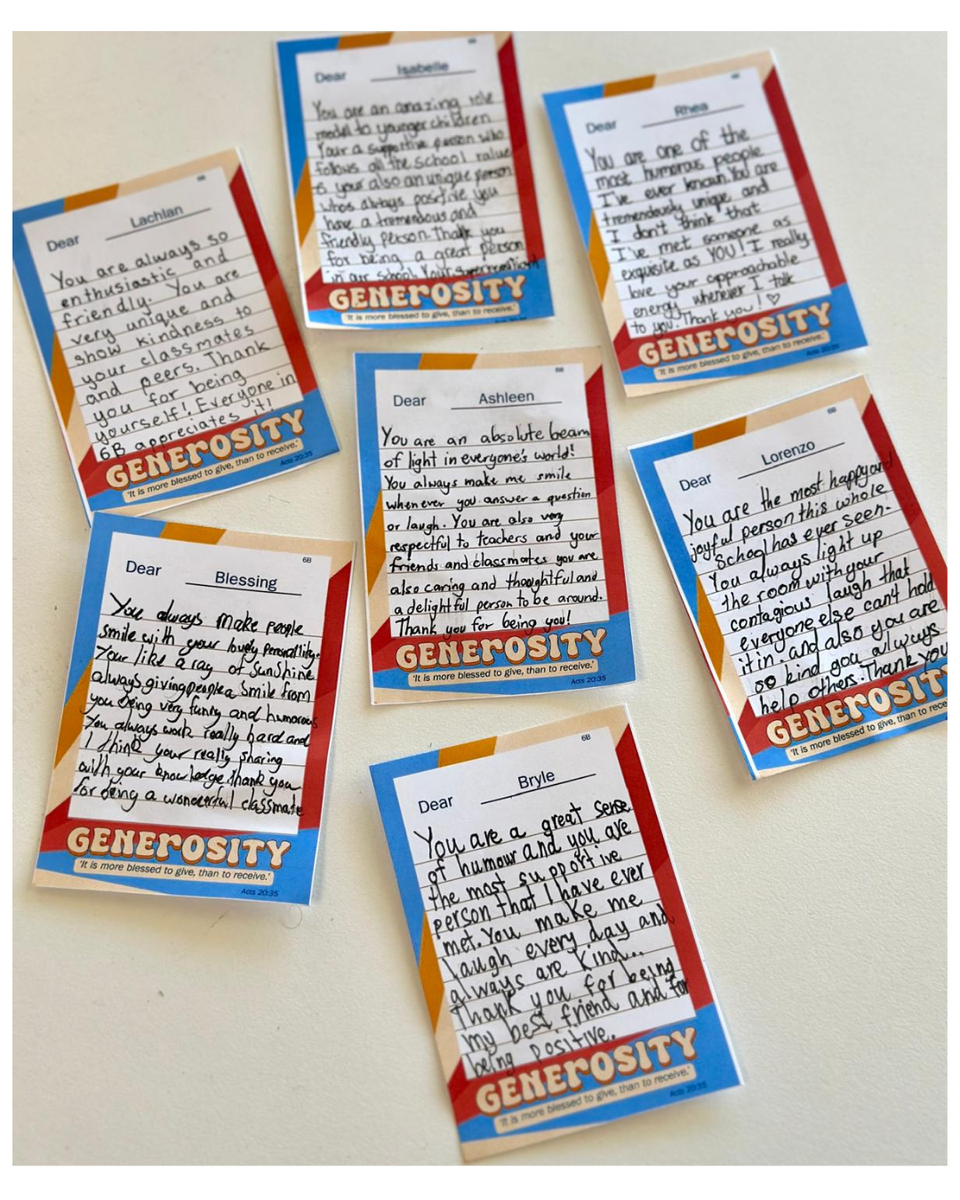 6B
Dear Isabelle
You are an amazing role
model to younger children
Your a supportive person who
follows all the school value
s your also an unique person
whos always positive you
have a tremendous and
friendly person. Thank you
for being a great person
in our school. Your
GENEROSITY
'It is more blessed to give, than to receive.'
Acts 20:35
6B
Dear Rhea
You are one of the
most humorous people
I've ever known. You are
tremendously unique and
I don't think that
I've met someone as
exquisite as YOU! I really
love your approachable
energy whenever I talk
to you. Thank you! ♡
GENEROSITY
'It is more blessed to give, than to receive.'
Acts 20:35
6B
Dear Lachlan
You are always so
enthusiastic and
friendly. You are
very unique and
show kindness to
your classmates
and peers. Thank
you for being
yourself! Everyone in
6B appreciates it!
GENEROSITY
'It is more blessed to give, than to receive.'
Acts 20:35
6B
Dear Ashleen
You are an absolute beam
of light in everyone's world!
You always make me smile
whenever you answer a question
or laugh. You are also very
respectful to teachers and your
friends and classmates you are
also caring and thoughtful and
a delightful person to be around.
Thank you for being you!
GENEROSITY
'It is more blessed to give, than to receive.'
Acts 20:35
6B
Dear Lorenzo
You are the most happy and
joyful person this whole
school has ever seen.
You always light up
the room with your
contagious laugh that
everyone else cant hold
it in. and also you are
so kind you always
help others. Thank you
GENEROSITY
'It is more blessed to give, than to rece
6B
Dear Blessing
You always make people
smile with your lovely personality.
Your like a ray of sunshine
always giving people a smile from
you being very funny and humorous
You always work really hard and
I think your really sharing
with your knowledge. thank you
for being a wonderful classmate
GENEROSITY
'It is more blessed to give, than to receive.'
Acts 20:35
6B
Dear Bryle
You are a great sense
of humour and you are
the most supportive
person that I have ever
met. You make me
laugh every day and
always are kind..
Thank you for being
my best friend and for
being positive.
GENEROSITY
'It is more blessed to give, than to receive.'
Acts 20:35